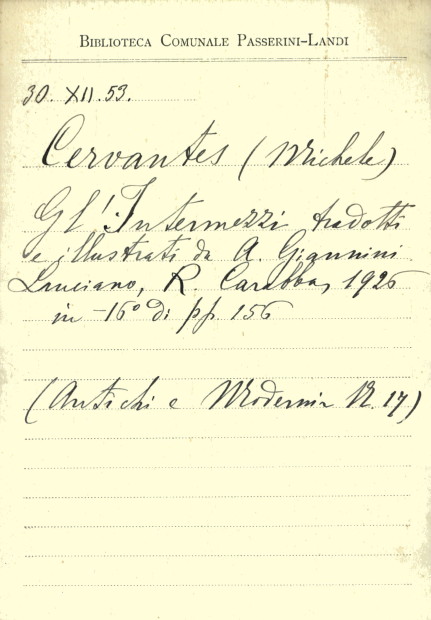 BIBLIOTECA COMUNALE PASSERINI-LANDI
30. XII. 53.
Cervantes (Michele)
Gl'Intermezzi tradotti
e illustrati da A. Giannini
Lanciano, R. Carabba, 1926
in -16° di pp. 156
(Antichi e Moderni N. 17)